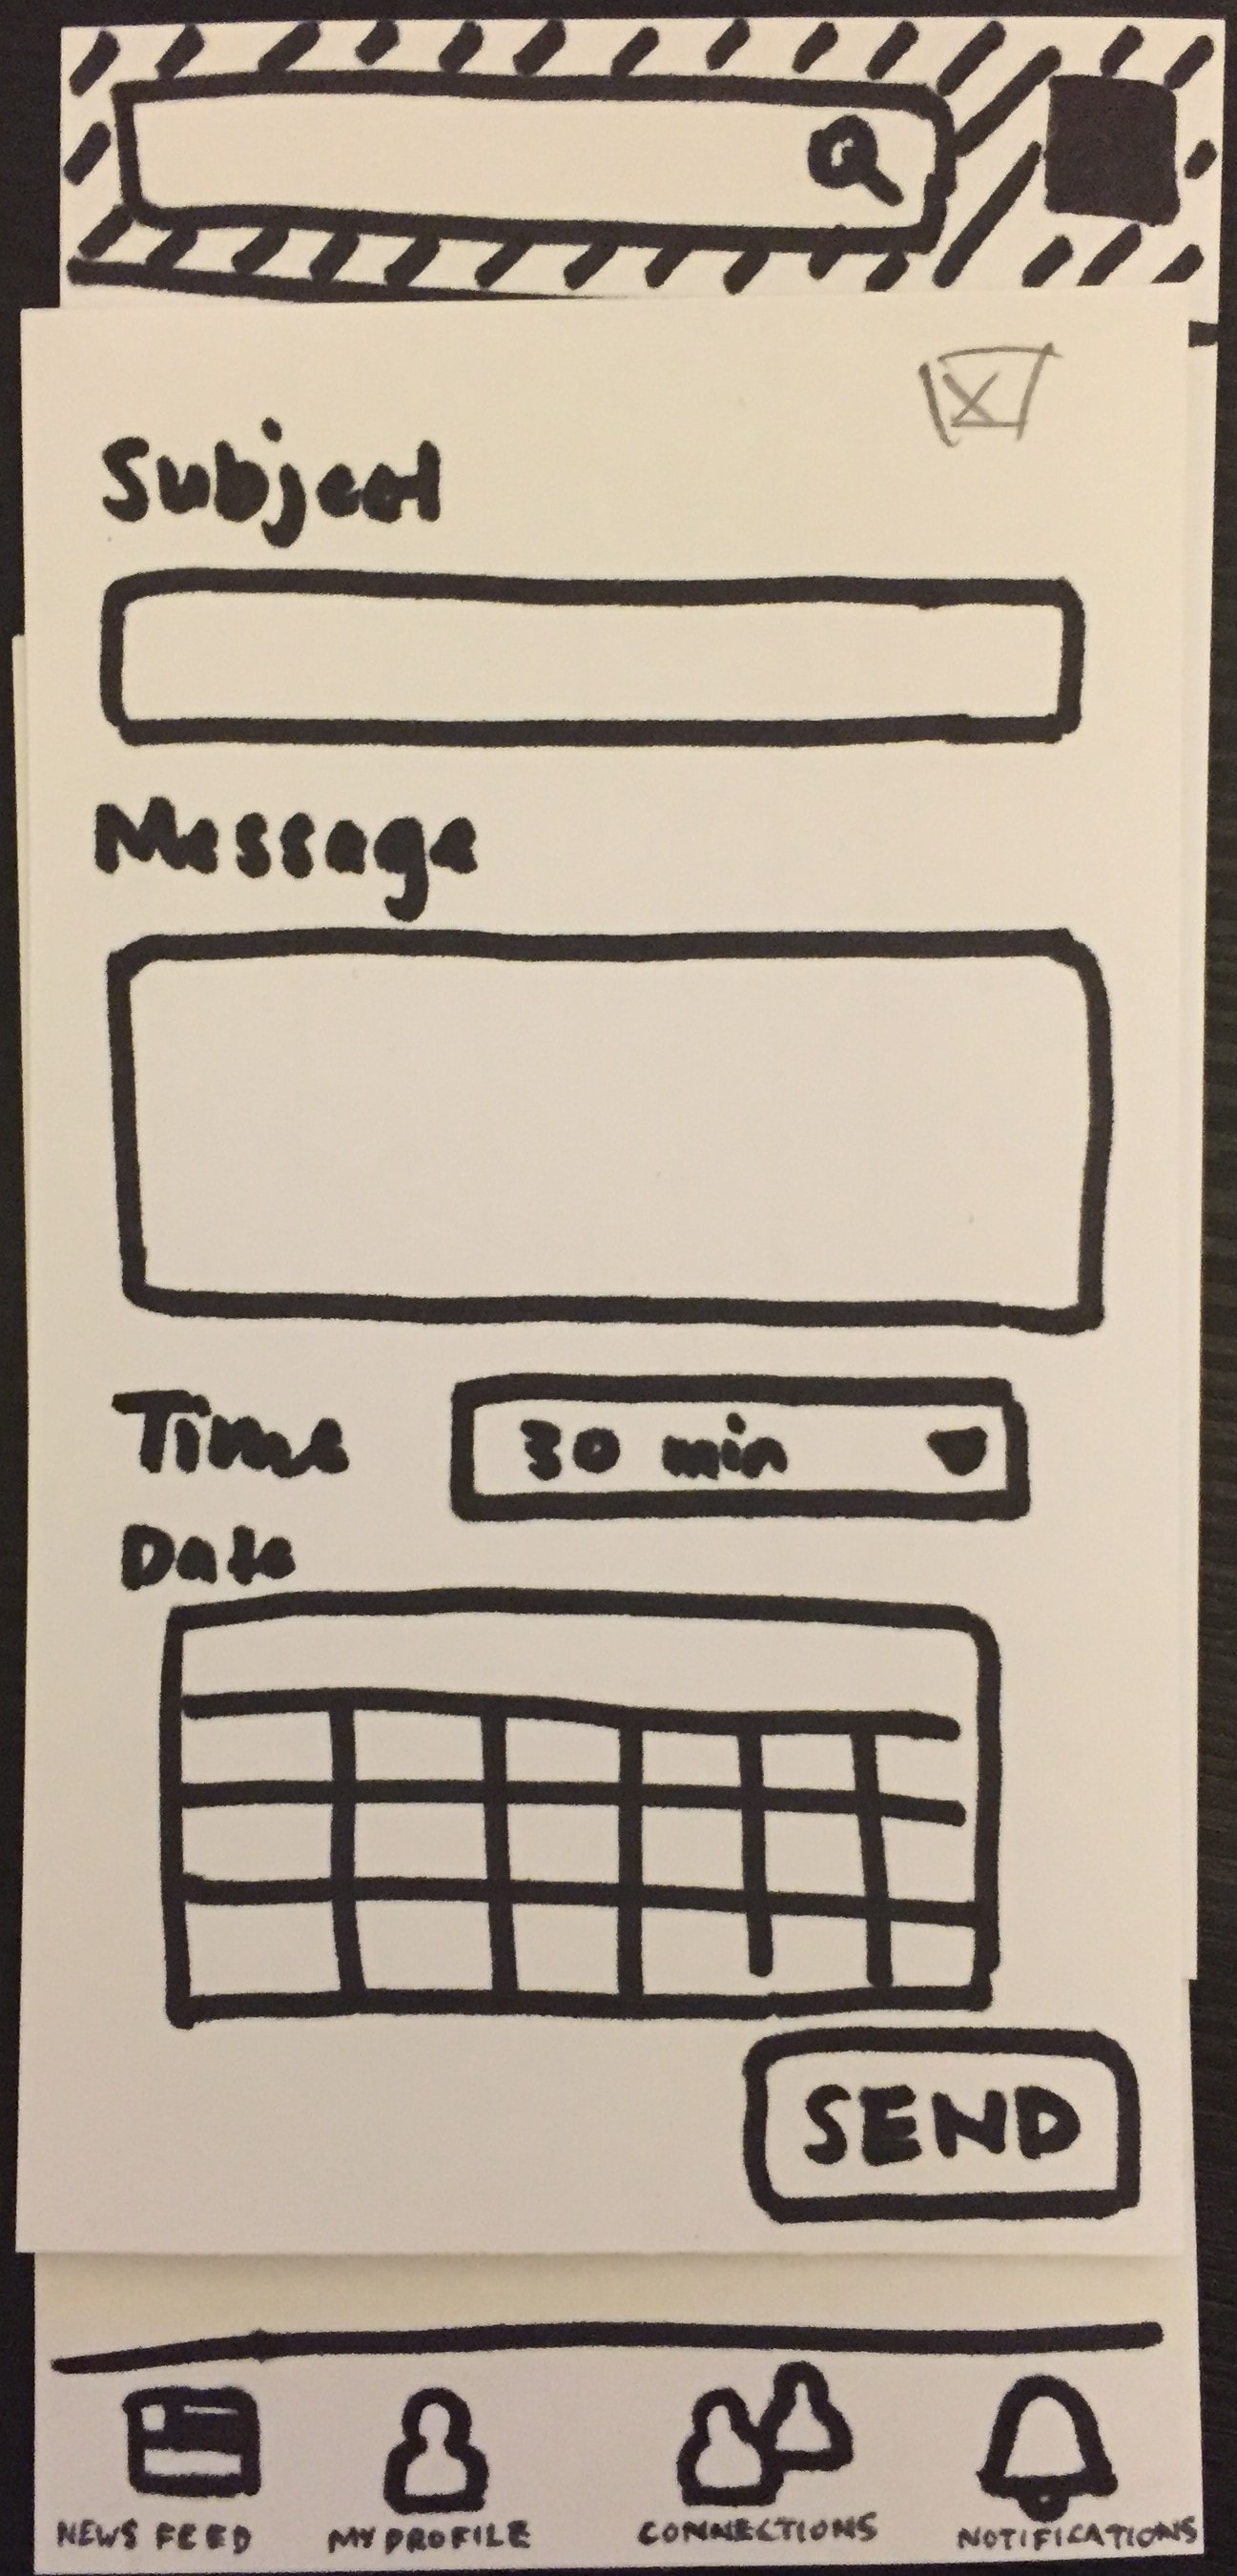 Subject
Message
Time 30 min
Date
SEND
NEWS FEED MY PROFILE CONNECTIONS NOTIFICATIONS